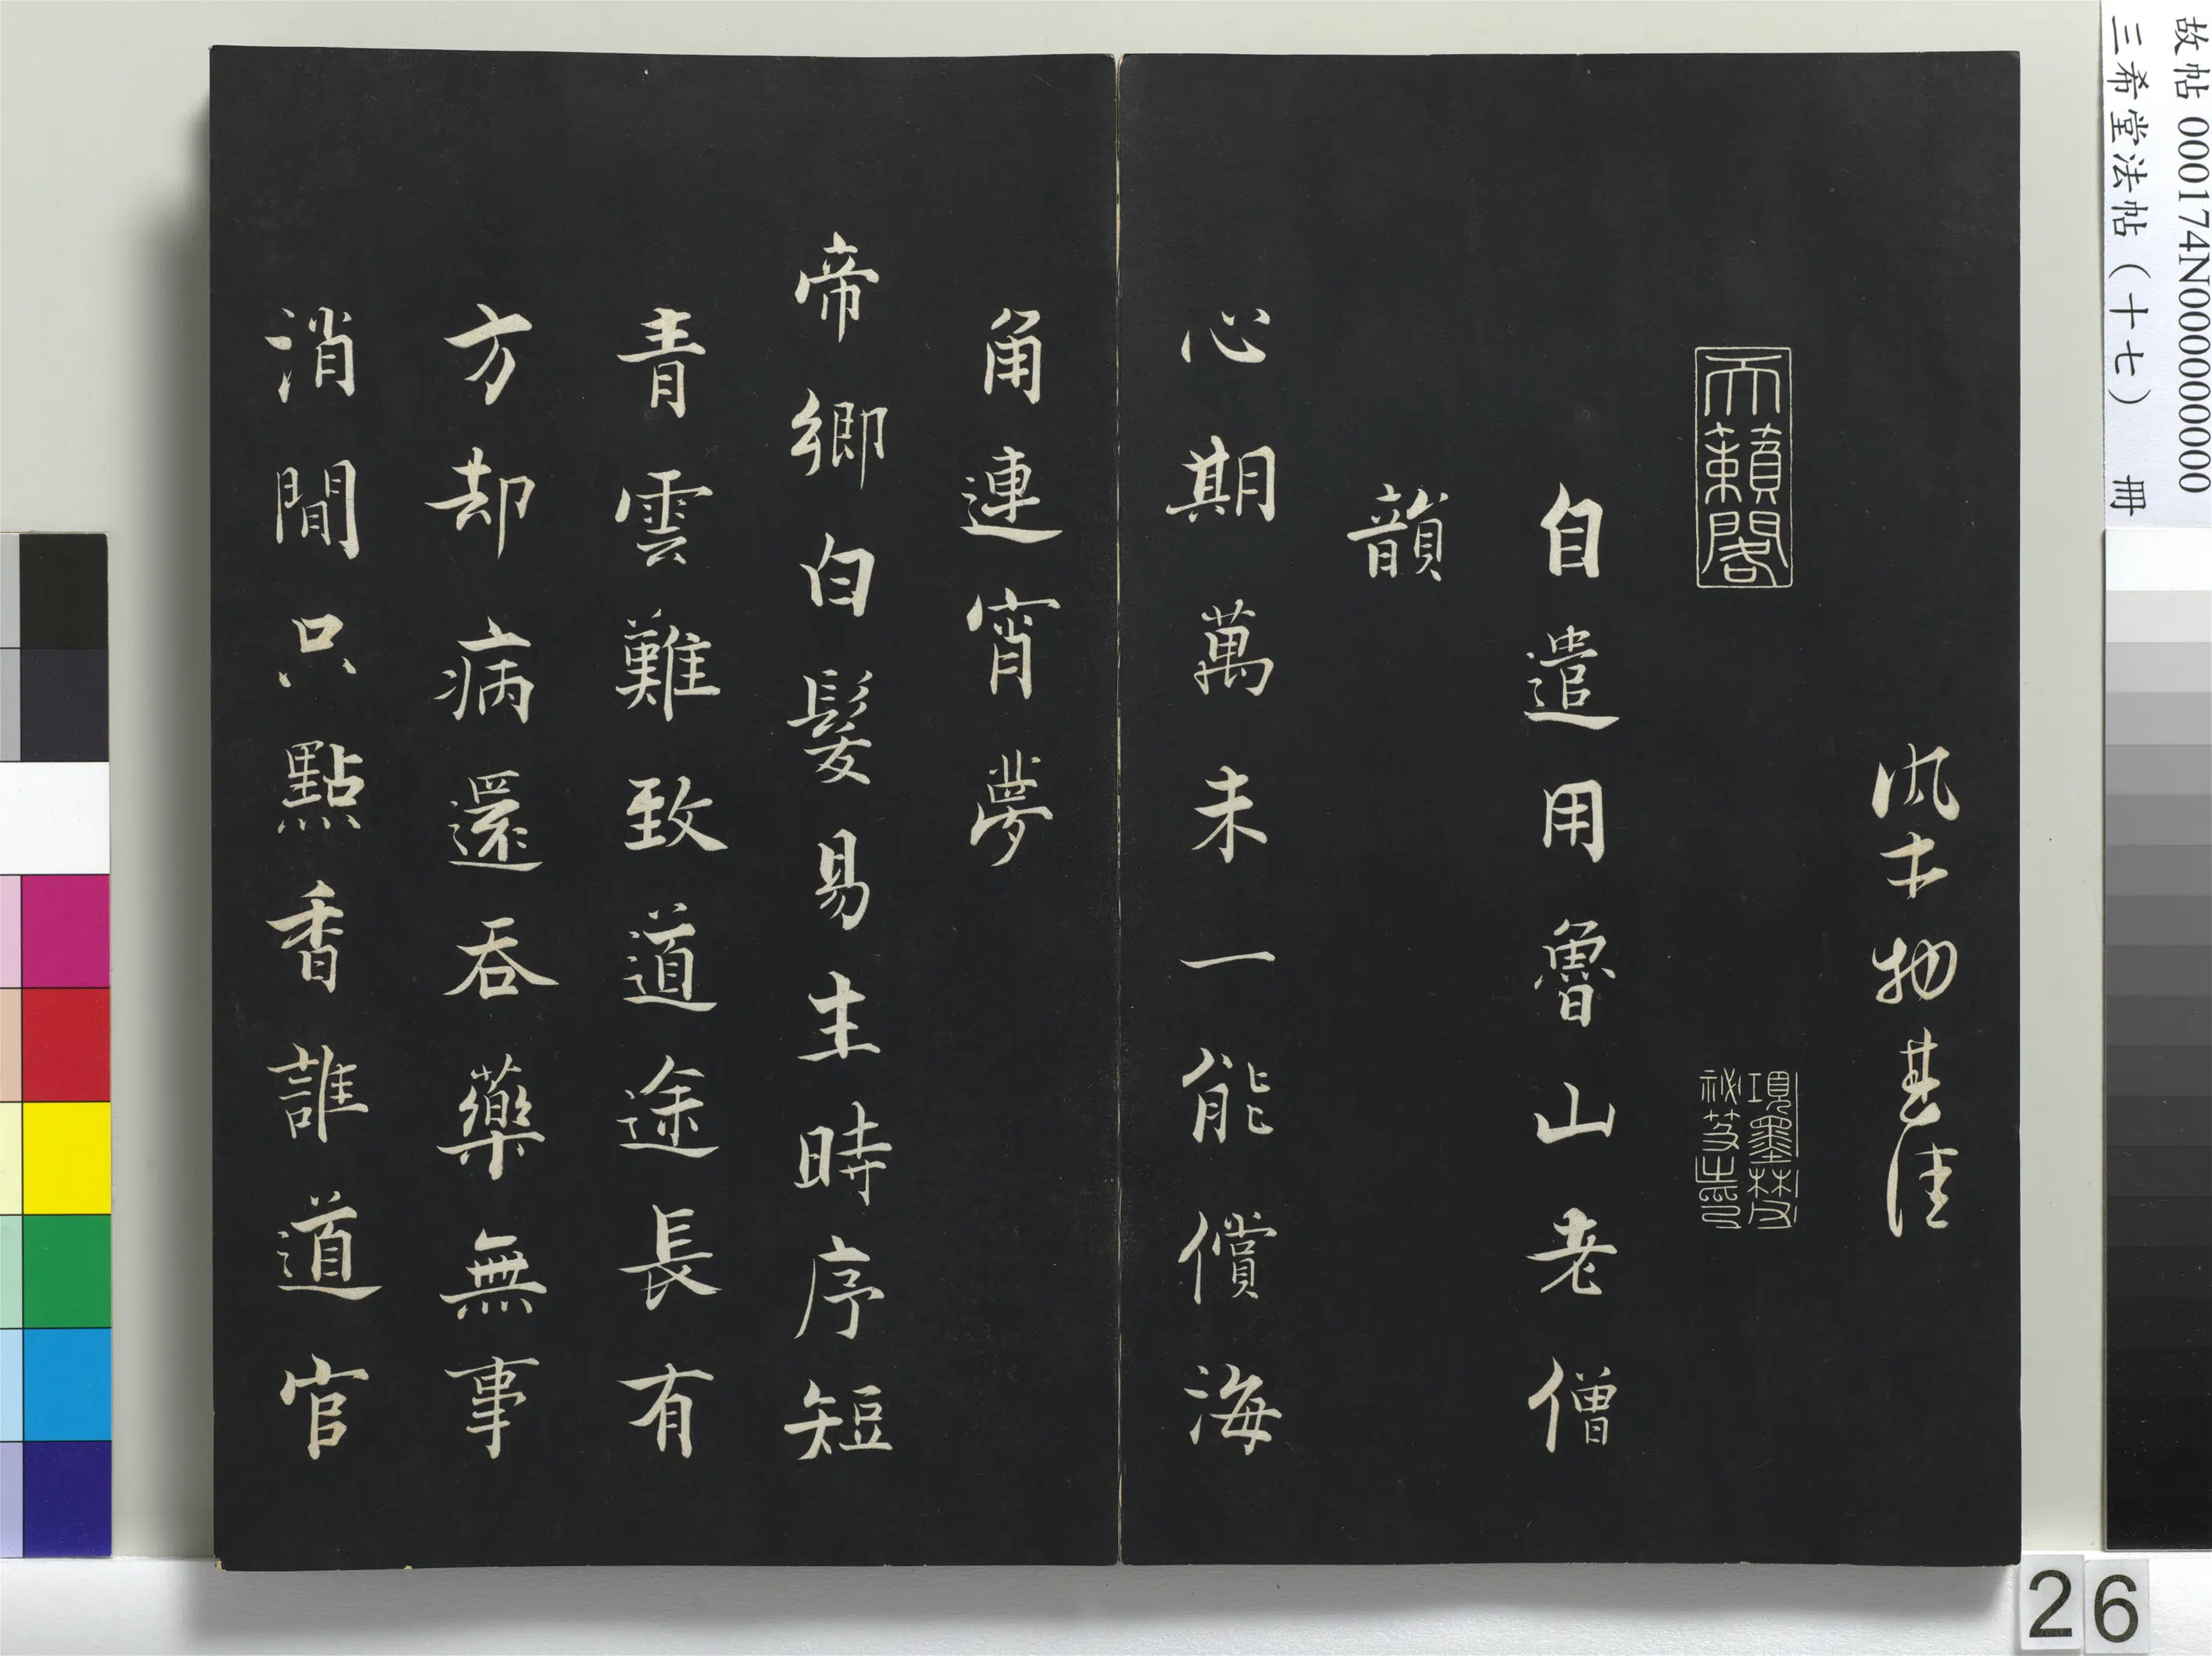 故帖000174N000000000
三希堂法帖(十七) 冊
風土物甚佳
天籟閣
項墨林父
祕笈之印
自遣用魯山老僧
韻
心期萬未一能償海
角連宵夢
帝鄉白髮易生時序短
青雲難致道途長有
方却病還吞藥無事
消閒只點香誰道官
26